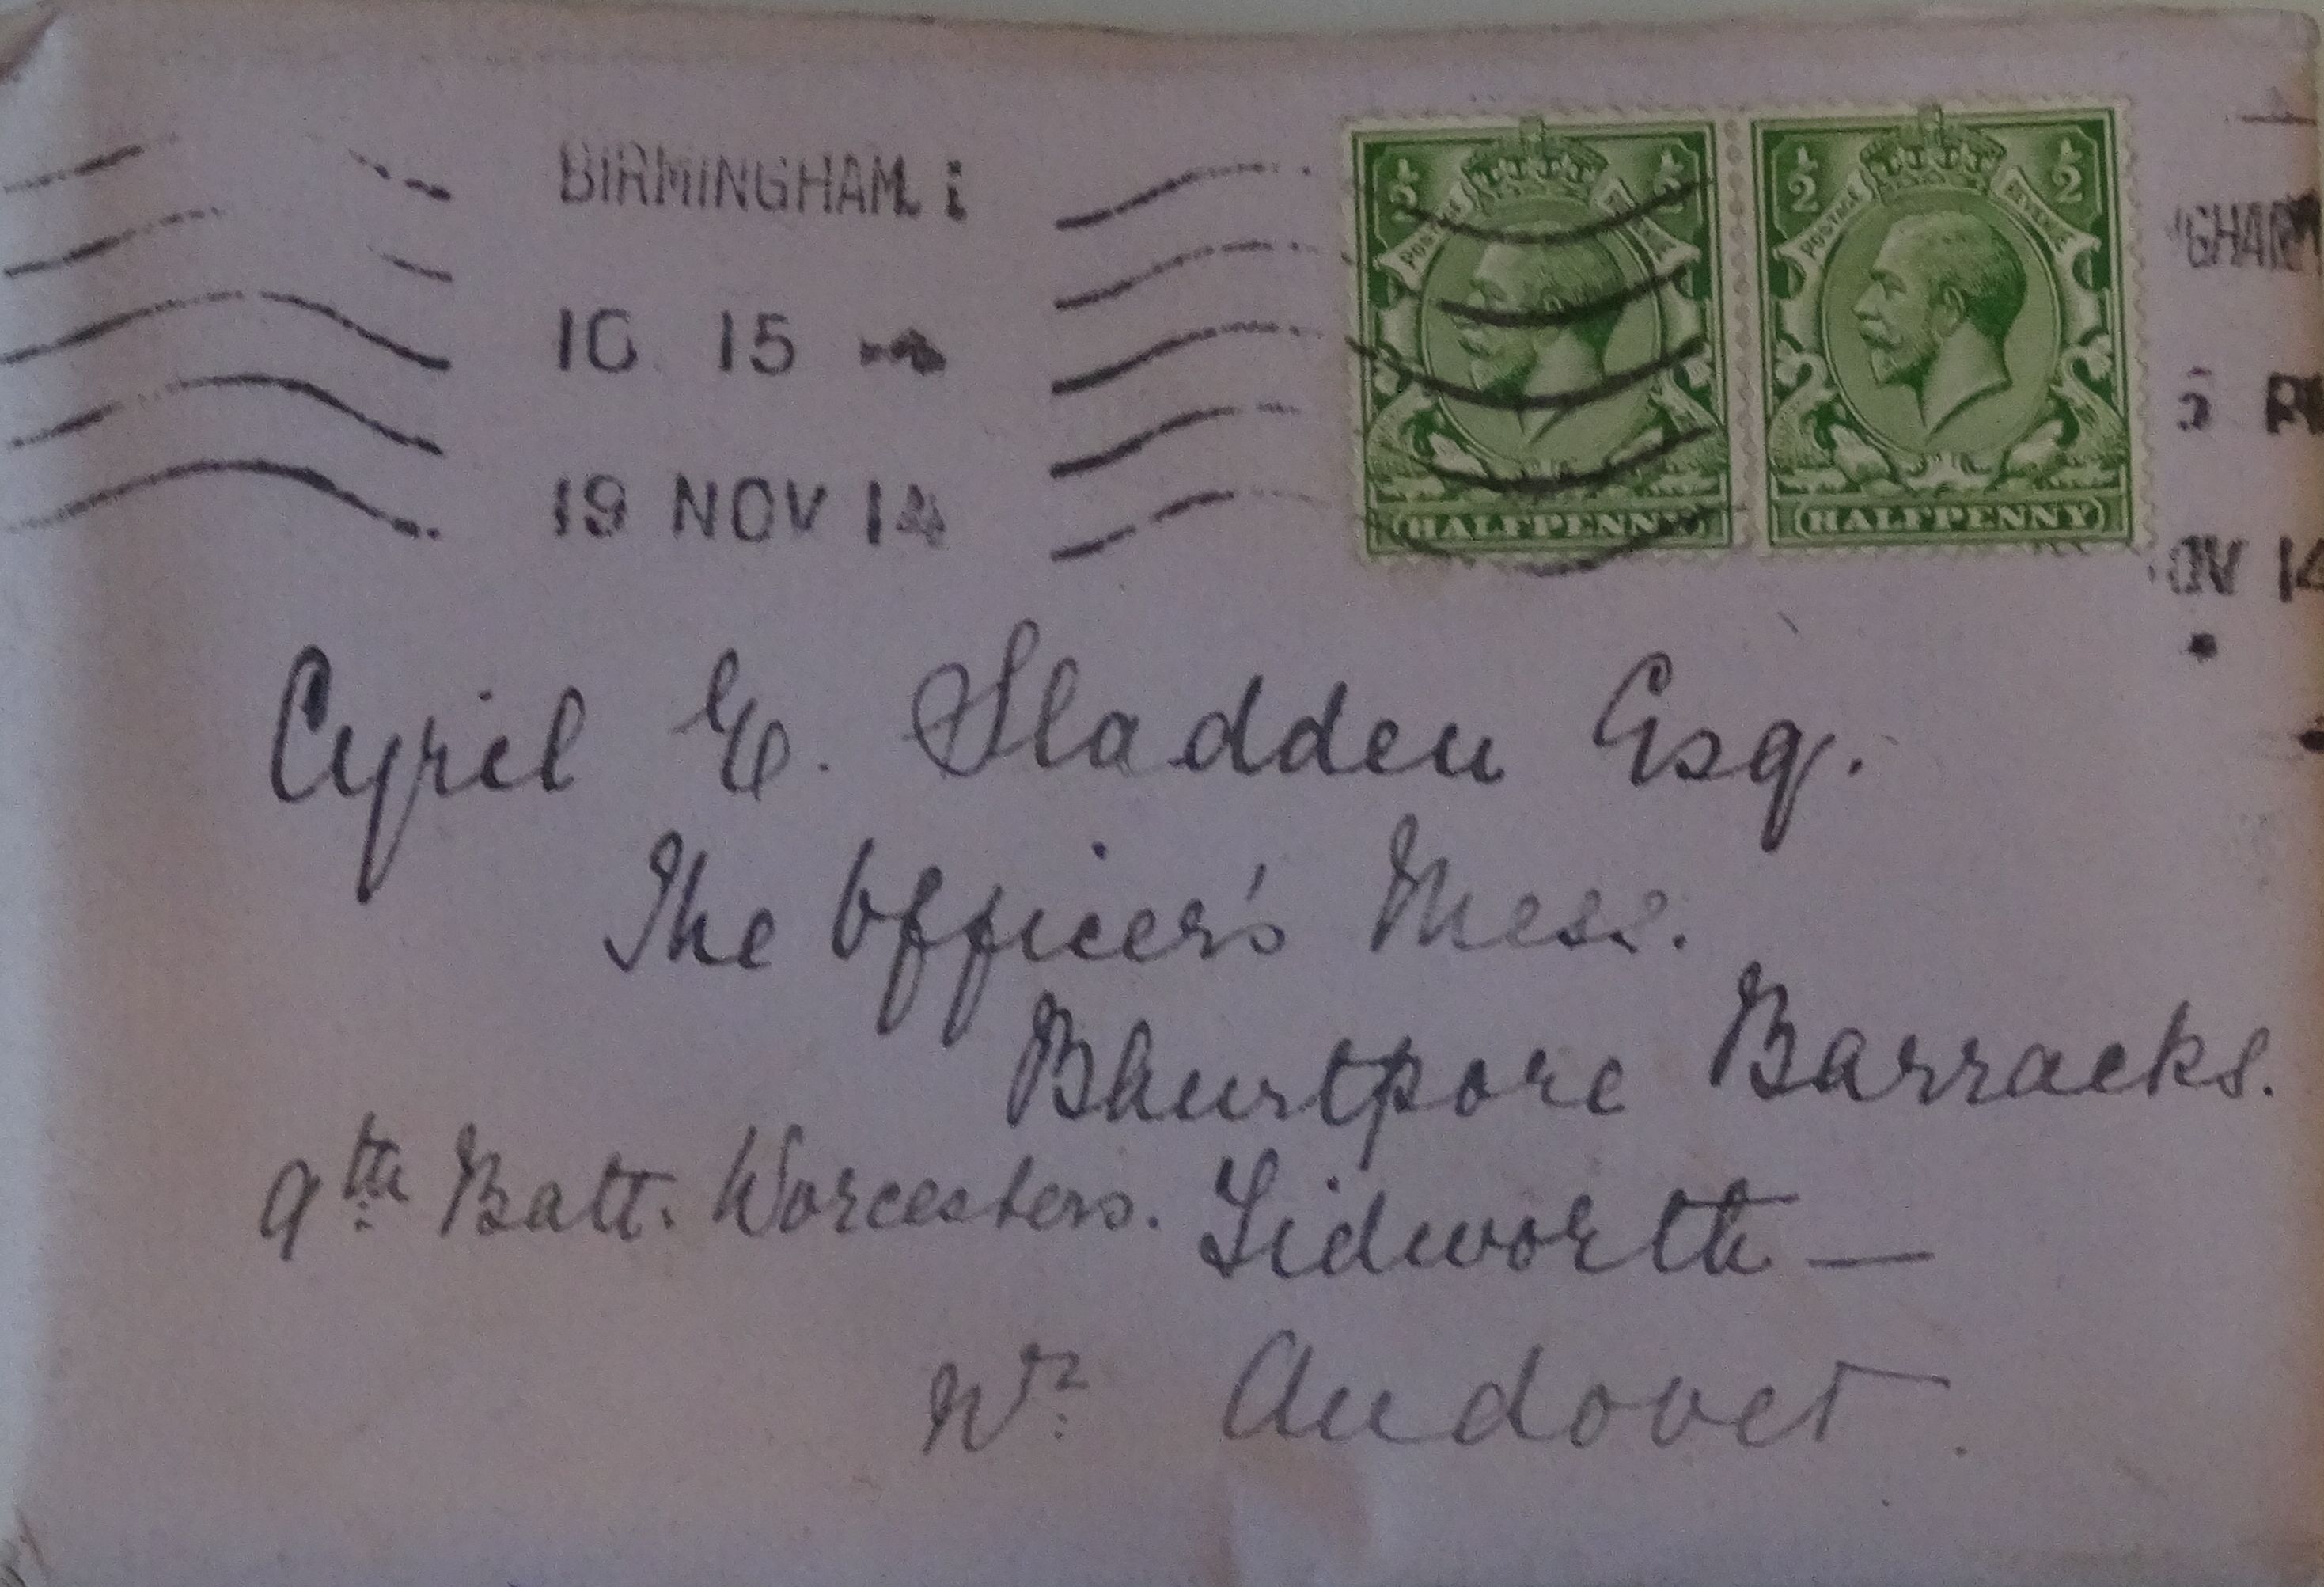 BIRMINGHAM
10 15
19 NOV 14
½ ½
POSTAGE REVENUE
HALFPENNY
½ ½
POSTAGE REVENUE
HALFPENNY
GHAM
5 P
OV 14
Cyril E. Sladden Esq.
The Officer's Mess.
Bhurtpore Barracks.
9th Batt. Worcesters. Tidworth —
Nr Andover.